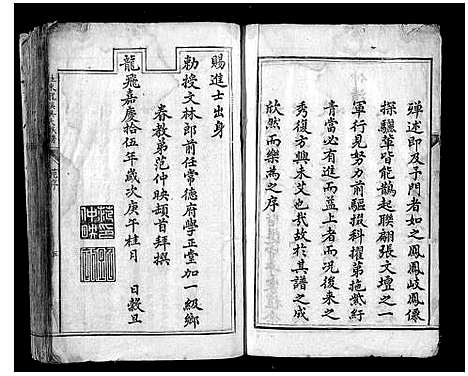 殫述即及于門者如之鳳鳳岐鳳傒
探驪華皆能鵲起聯翩張文壇之一
軍行見努力前驅掇科擢第拖紫紆
青當必有進而益上者而況後來之
秀復方興未艾也我故於其譜之成
欣然而樂為之序
賜進士出身
勅授文林郎前任常德府學正堂加一級鄉
眷教弟范仲映頓首拜撰
龍飛嘉慶拾伍年歲次庚午桂月 日穀旦